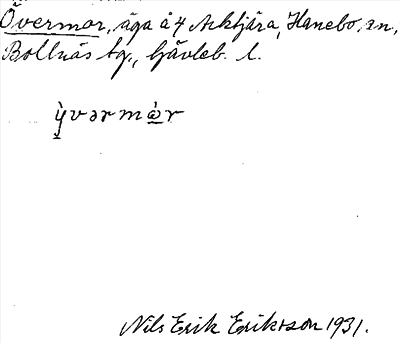 Övermor, äga å 4 Arktjära, Hanebo, sn,
Bollnäs tg., Gävleb. l.
ỳvərmàr
Nils Erik Eriksson 1931.